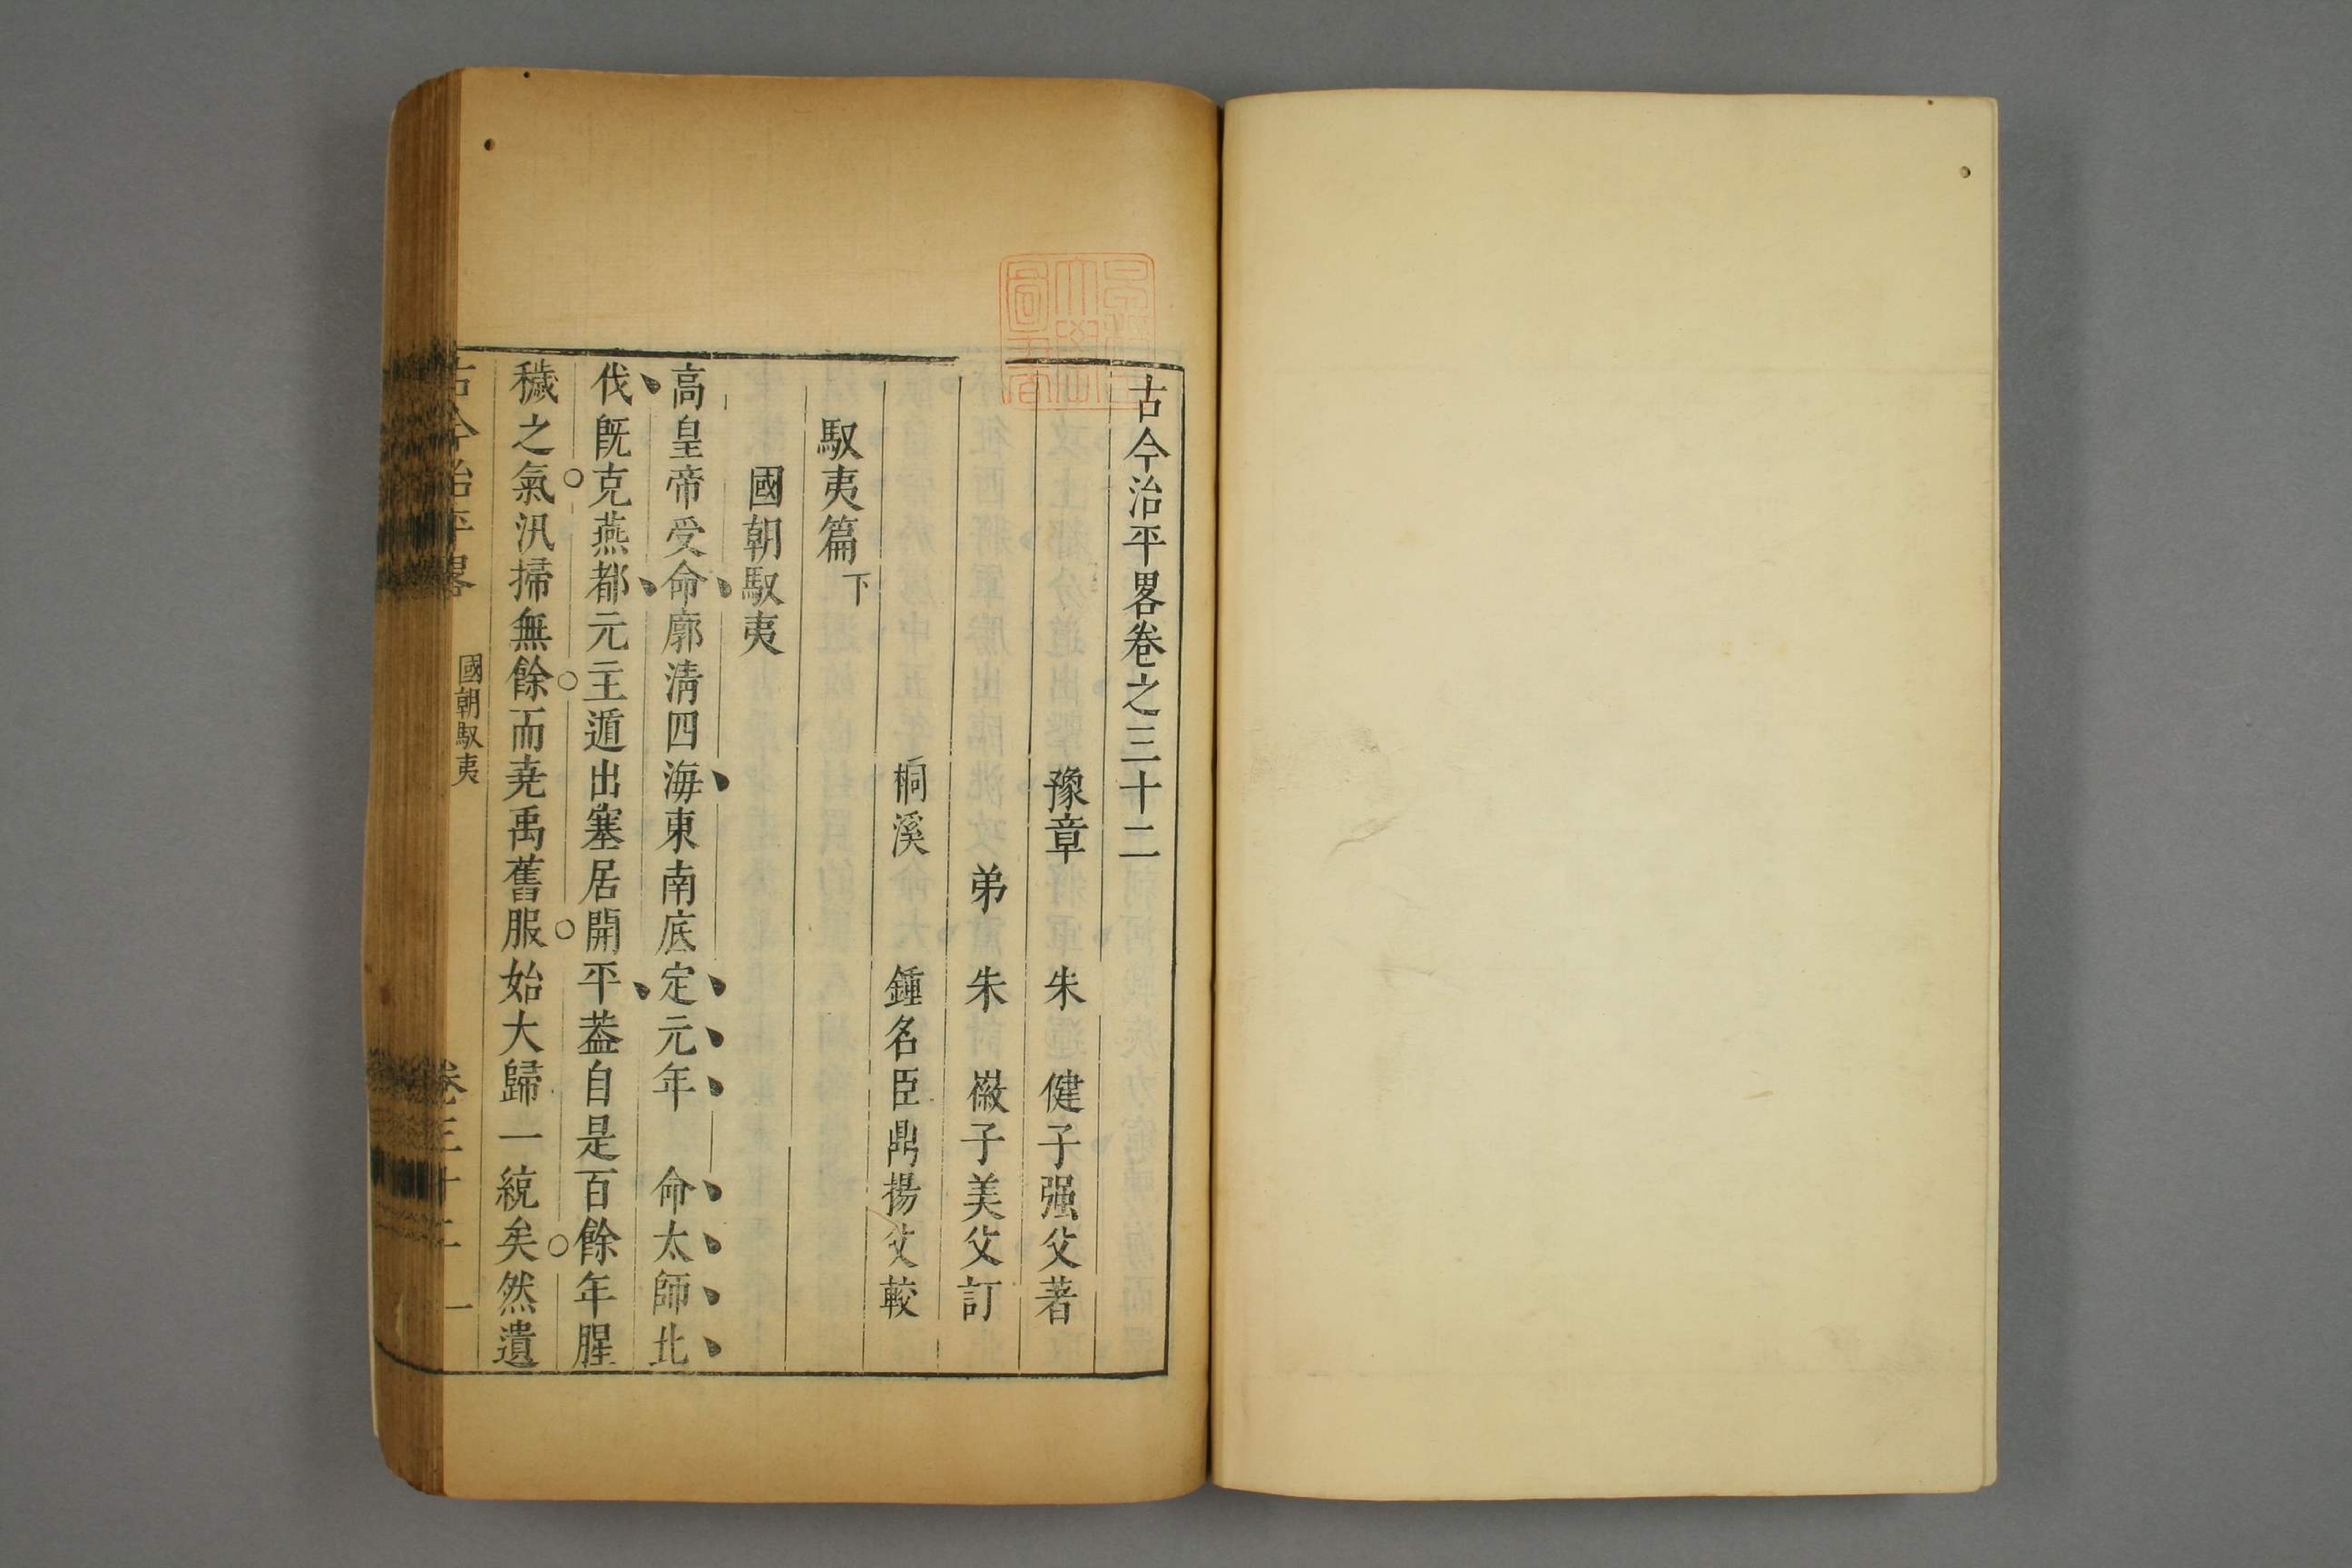 古今治平畧卷之三十二
豫章 朱 健子强父著
弟 朱 徽子美父訂
桐溪 鍾名臣鼎揚父較
馭夷篇下
國朝馭夷
高皇帝受命廓淸四海東南底定元年 命太師北
伐旣克燕都元主遁出塞居開平葢自是百餘年腥
穢之氣汛掃無餘而尭禹舊服始大歸一統矣然遺
古今治平畧 國朝馭夷 卷三十二 一